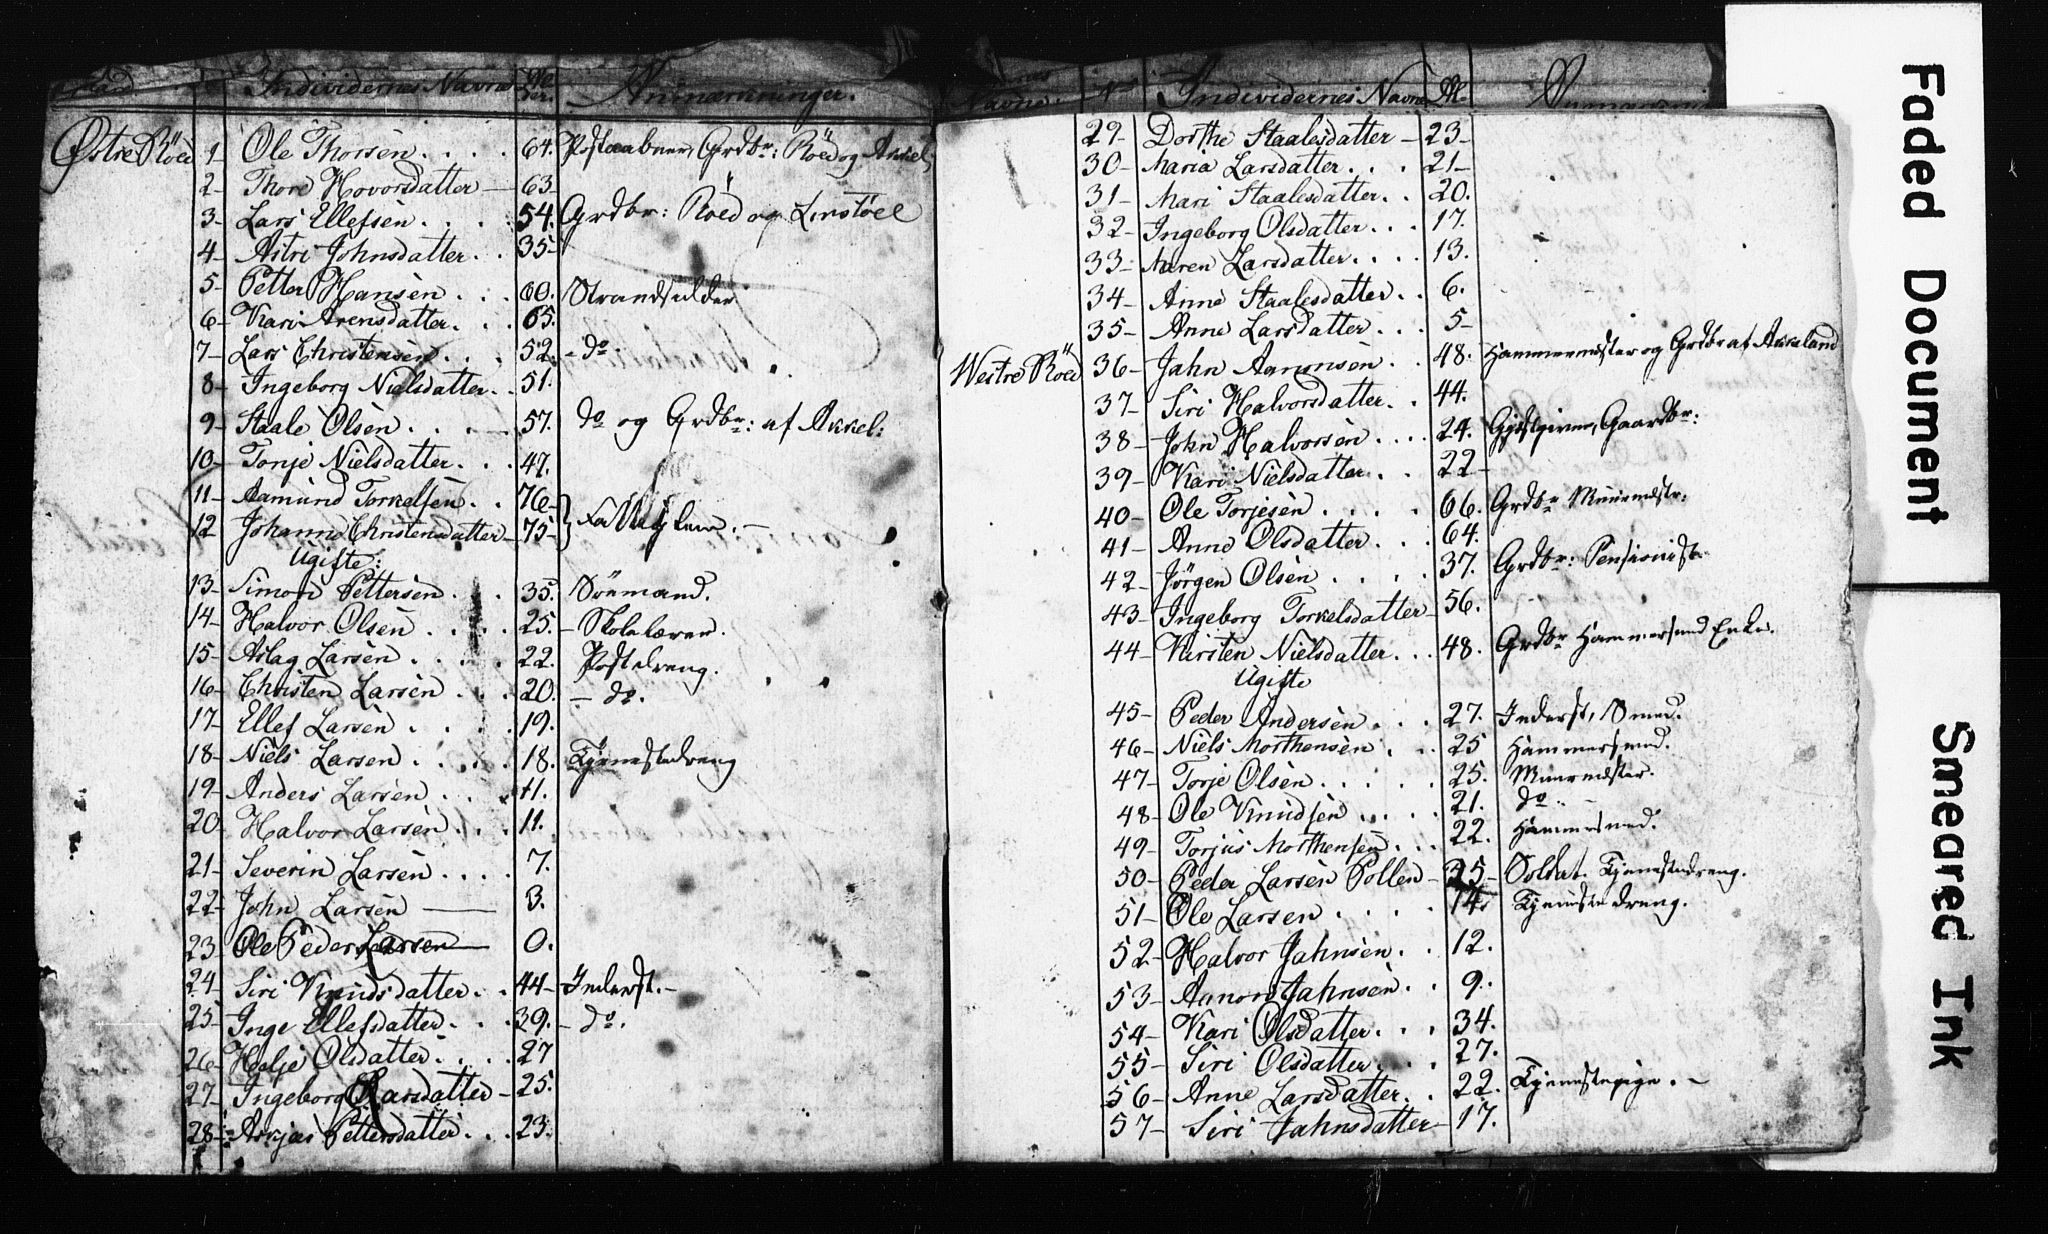 Individernes Navne Anmærkninger.
Østre Röed 1 Ole Thorsen 64. Postaabner, Grdbr: Röed og Akkel
2 Thore Hovorsdatter 63
3 Lars Ellefsen 54. Grdbr: Röed og Linstöel
4 Astri Johnsdatter 35
5 Petter Hansen 60. Strandsidder
6 Kari Arensdatter 65.
7 Lars Christensen 52. do
8 Ingeborg Nielsdatter 51.
9 Staale Olsen 57. do og Grdbr: af Akkel:
10 Tonje Nielsdatter 47.
11 Aamund Torkelsen 76
12 Johanne Christensdatter 75
Ugifte:
13 Simon Pettersen 35. Söemand.
14 Halvor Olsen 25. Skolelærer.
15 Aslag Larsen 22. Postdreng.
16 Christen Larsen 20. do.
17 Ellef Larsen 19.
18 Niels Larsen 18. Tjenestedreng
19 Anders Larsen 11.
20 Halvor Larsen 11.
21 Severin Larsen 7.
22 John Larsen 3.
23 Ole Peder Larsen 0.
24 Siri Knudsdatter 44 Inderst.
25 Inge Ellefsdatter 39. do.
26 Helje Olsdatter 27
27 Ingeborg Larsdatter 25.
28 Asjer Pettersdatter 23.
Navne. No Individernes Navne
29 Dorthe Staalesdatter 23
30 Maria Larsdatter 21
31 Mari Staalesdatter 20.
32 Ingeborg Olsdatter 17.
33 Maren Larsdatter 13.
34 Anne Staalesdatter 6.
35 Anne Larsdatter 5
Westre Röed 36 Jahn Aanonsen 48. Hammermester og Grdbr af Akkeland
37 Siri Halvorsdatter 44.
38 John Halvorsen 24. Gjestgiver, Gaardbr:
39 Kari Nielsdatter 22
40 Ole Torjesen 66. Grdbr Muurmestr:
41 Anne Olsdatter 64.
42 Jörgen Olsen 37. Grdbr: Pensionist
43 Ingeborg Torkelsdatter 56.
44 Kirsten Nielsdatter 48. Grdbr Hammersmed Enke.
Ugifte
45 Peder Andersen 27. Inderst, Smed.
46 Niels Morthensen 25 Hammersmed.
47 Torje Olsen 25. Muurmester.
48 Ole Knudsen 21. do
49 Torjus Morthensen 22. Hammersmed.
50 Peder Larsen Pollen 35 Soldat. Tjenestedreng.
51 Ole Larsen 14. Tjenestedreng.
52 Halvor Jahnsen 12.
53 Aanon Jahnsen 9.
54 Kari Olsdatter 34.
55 Siri Olsdatter 27.
56 Anne Larsdatter 22. Tjenestepige.
57 Siri Jahnsdatter 17.
Faded Document
Smeared Ink